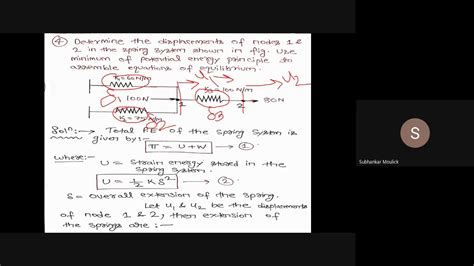 ④ Determine the displacements of nodes 1 &
2 in the spring system shown in fig. Use
minimum of potential energy principle to
assemble equations of equilibrium.
K₁=60N/m
u₁
u₂
δ₁
100N
1
K₃=100N/m
2
80N
δ3
δ2
Soln:→ Total P.E of the Spring System is
given by:-
π = U+W → ①
where:-
U = Strain energy stored in the
spring system.
U = ½ K δ² → ②
δ = Overall extension of the spring.
Let u₁ & u₂ be the displacements
of node 1 & 2, then extension of
the springs are :—
S
Subhankar Moulick